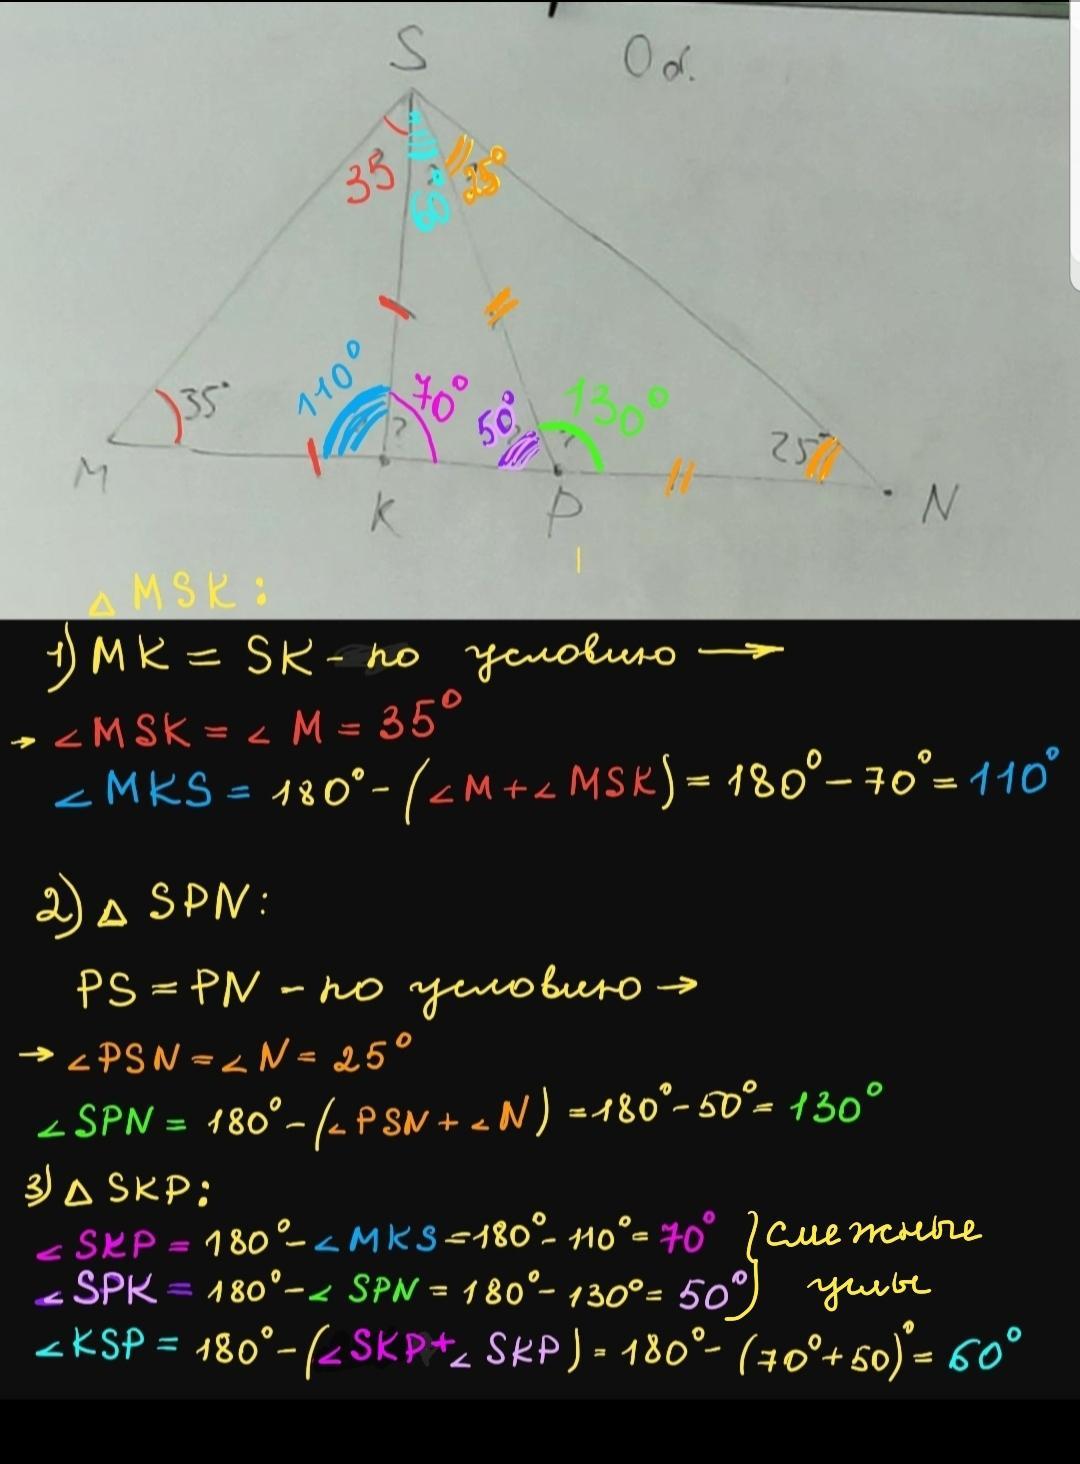 S
Od.
35
60°
25°
110°
70°
50°
130°
35°
?
?
25
M
K
P
N
△ MSK:
1) MK = SK - по условию →
→ ∠MSK = ∠ M = 35°
∠MKS = 180° - (∠M + ∠MSK) = 180° - 70° = 110°
2) △ SPN:
PS = PN - по условию →
→ ∠PSN = ∠N = 25°
∠SPN = 180° - (∠PSN + ∠N) = 180° - 50° = 130°
3) △ SKP:
∠SKP = 180° - ∠MKS = 180° - 110° = 70° } смежные
∠SPK = 180° - ∠ SPN = 180° - 130° = 50° углы
∠KSP = 180° - (∠SKP + ∠ SKP) = 180° - (70° + 50)° = 60°